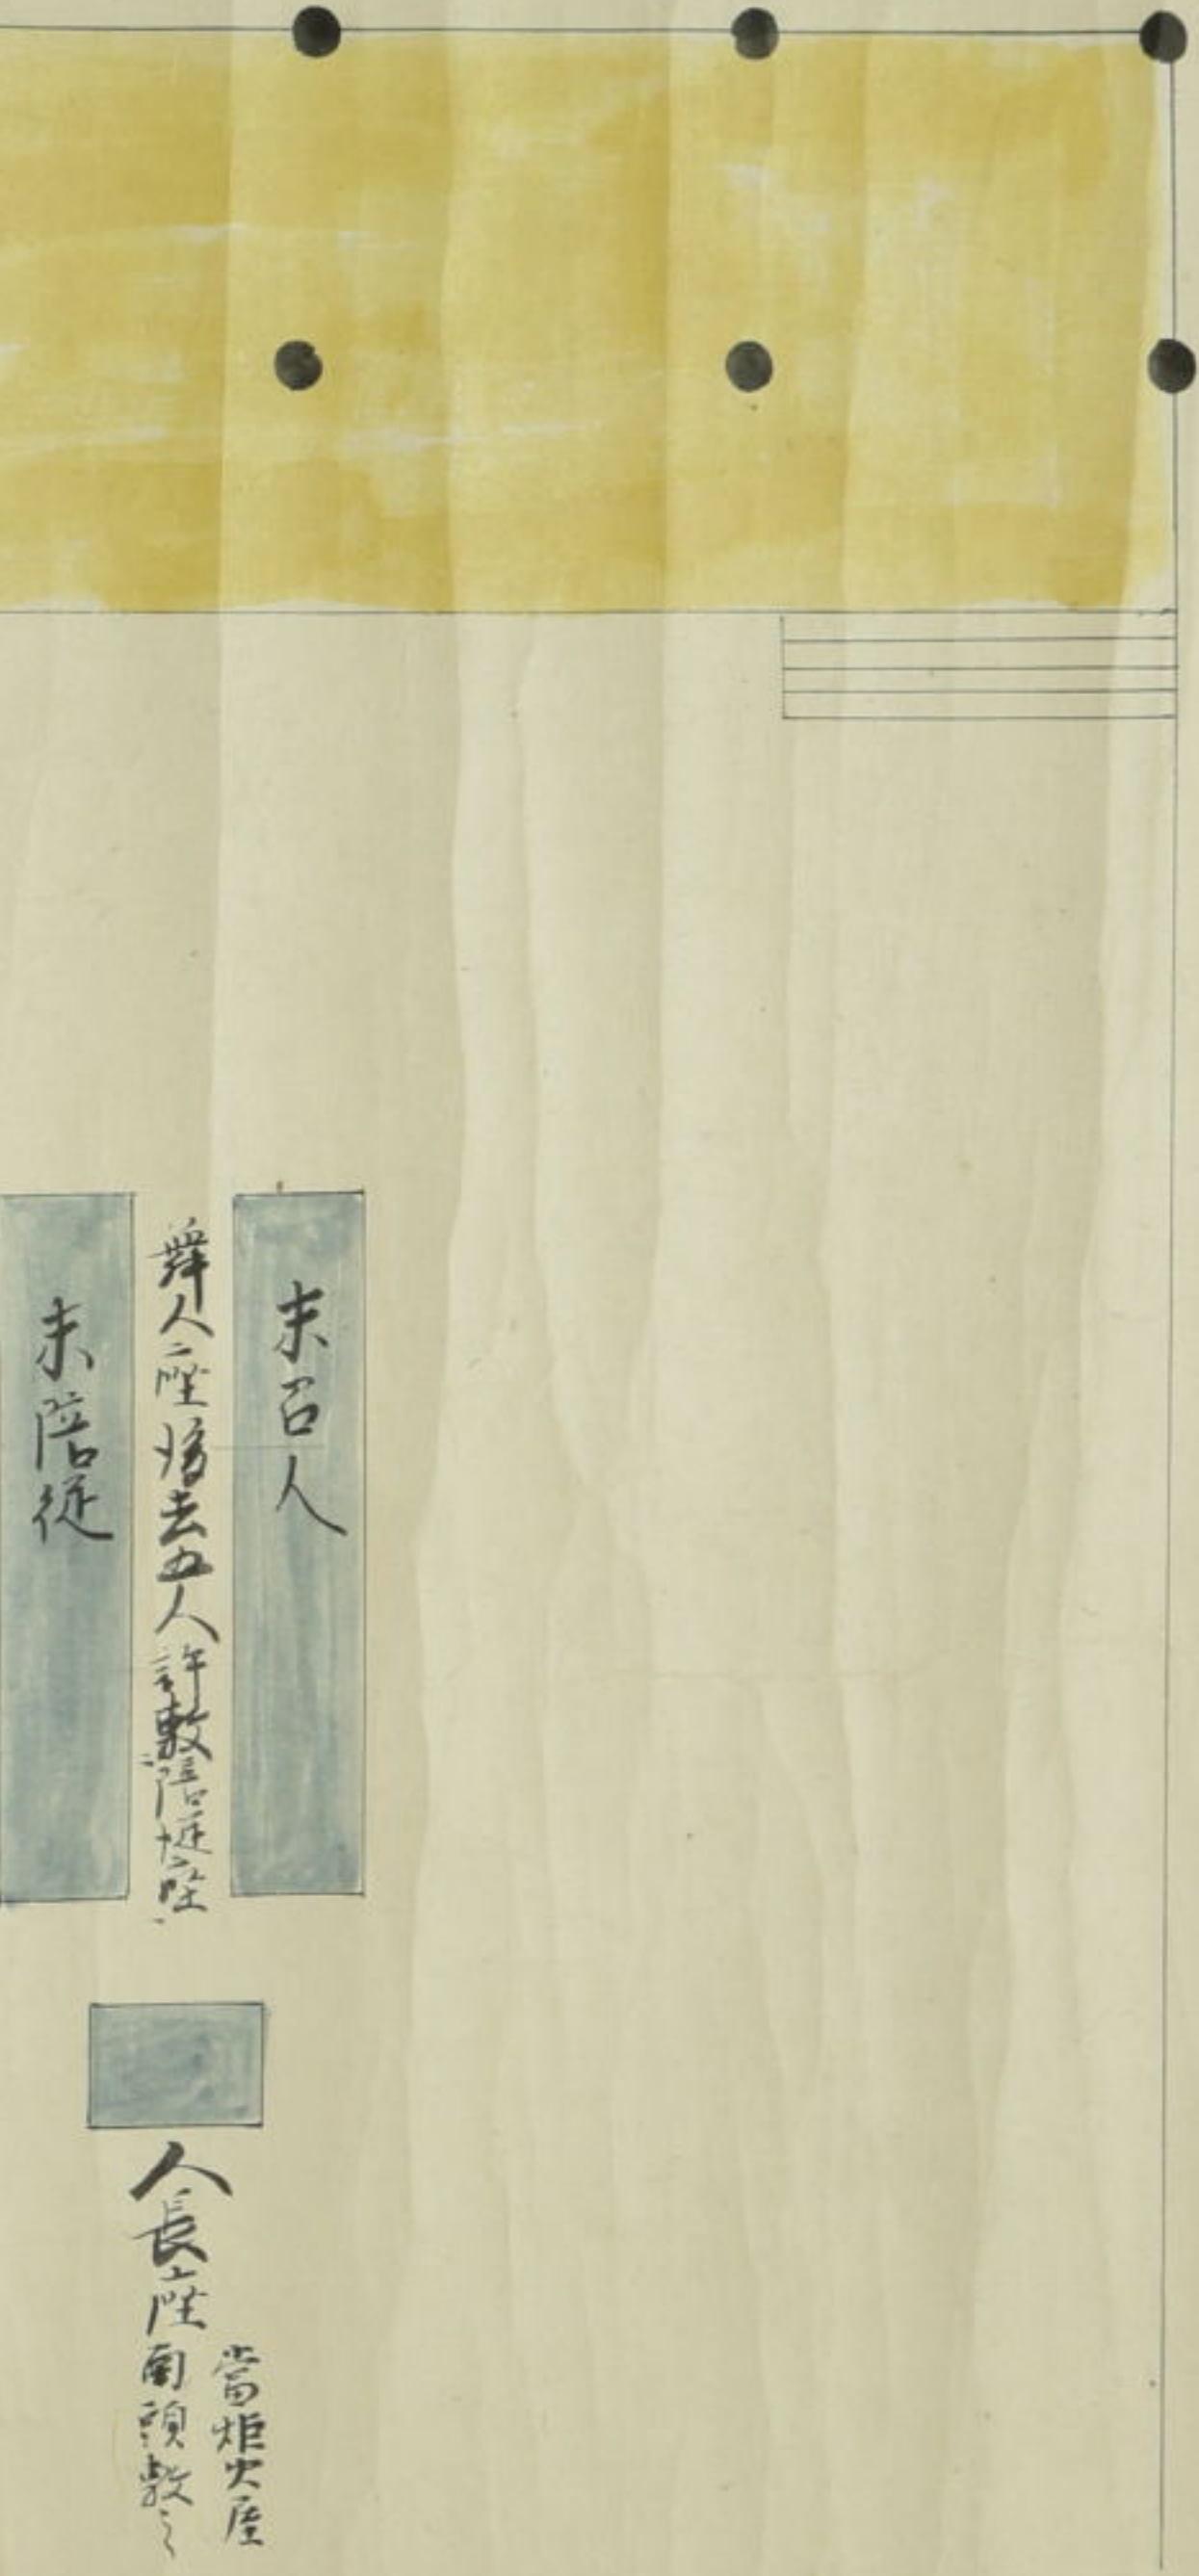 末召人
舞人座後去五人許敷陪従座
末陪従
人長座
當炬火屋
南頭敷之